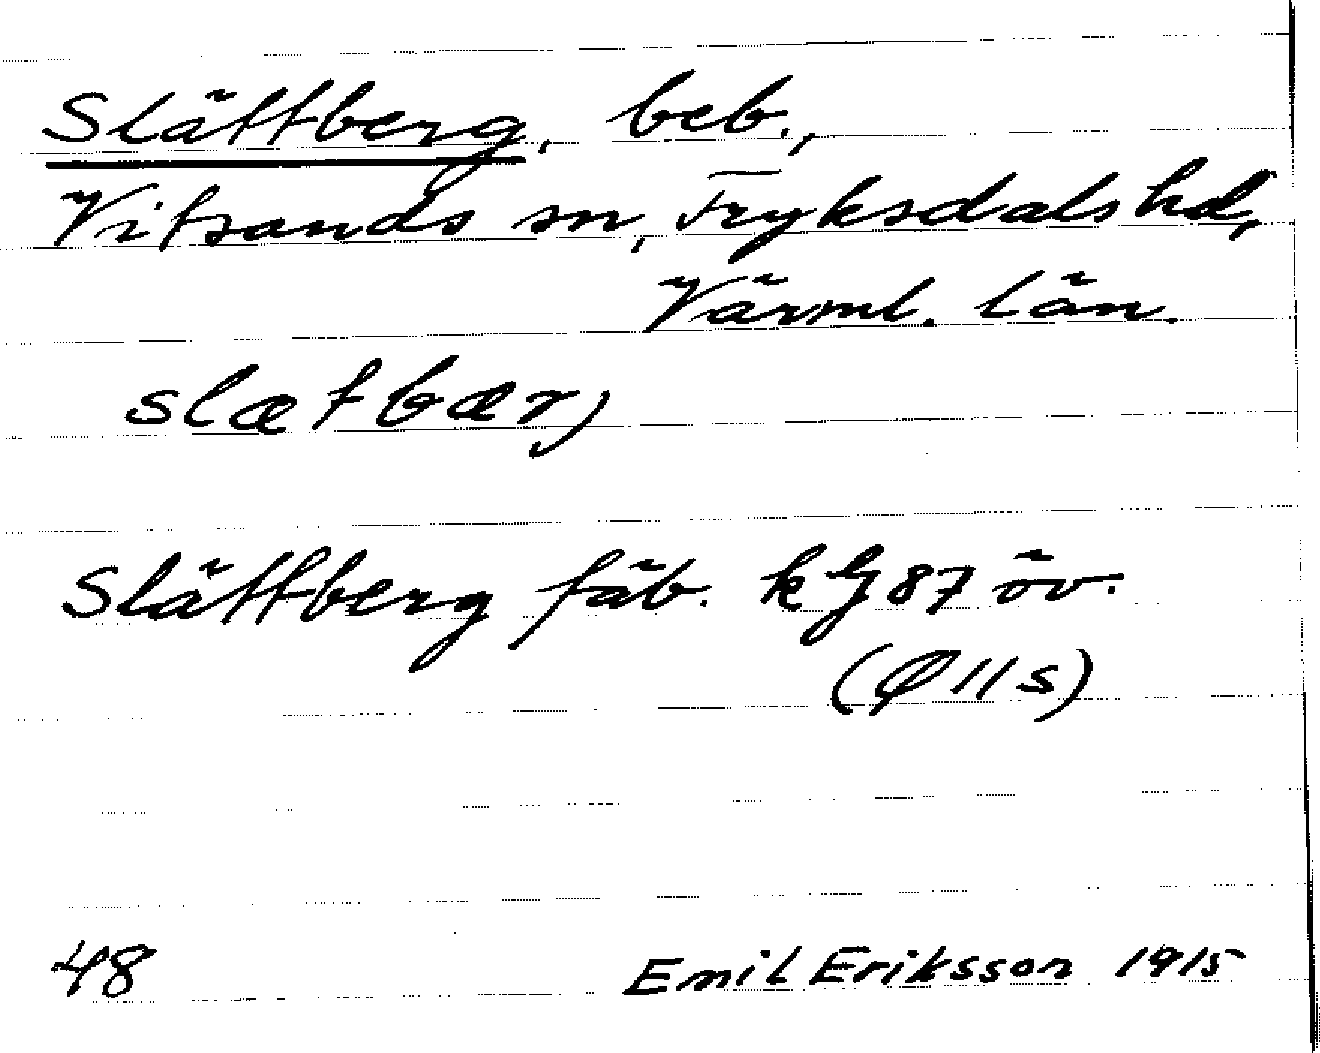 Slättberg, beb.,
Vitsands sn, Fryksdals hd,
Värml. län.
slætbær)
Slättberg fäb. kG87 öv.
(Ø 11 s)
48 Emil Eriksson 1915